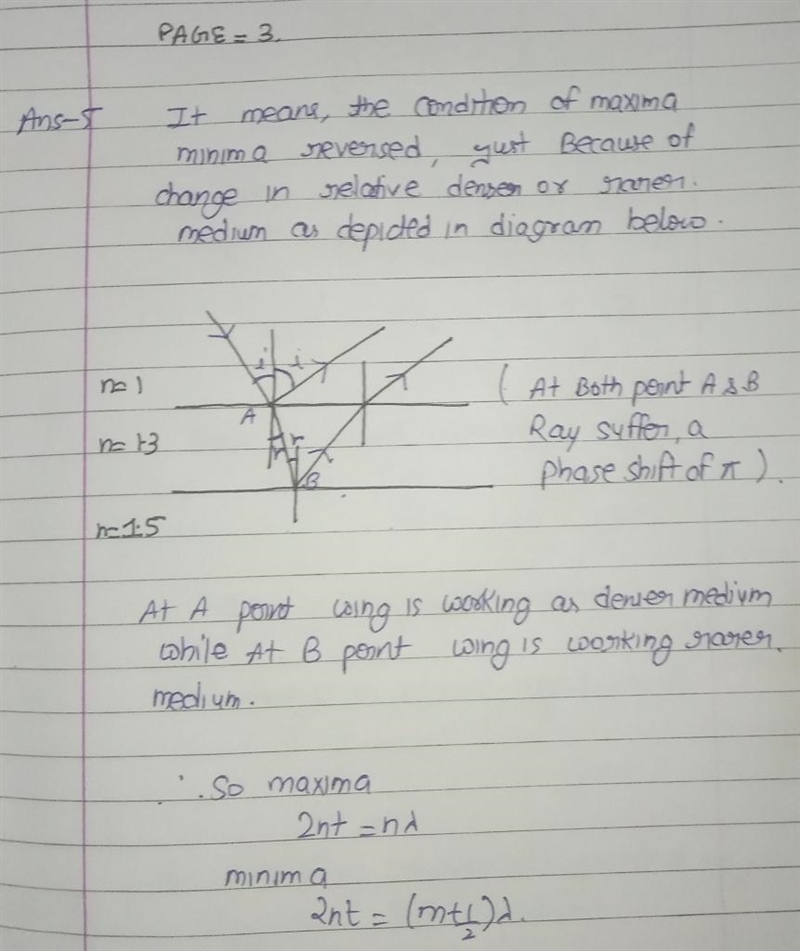 PAGE = 3.
Ans-5 It means, the condition of maxima
minima reversed, just Because of
change in relative denser or rarer.
medium as depicted in diagram below.
i i
n=1
A
( At Both point A & B
r
n=1.3
Ray suffer, a
B
phase shift of π ).
n=1.5
At A point wing is working as denser medium
while At B point wing is working rarer.
medium.
∴ So maxima
2nt = nλ
minima
2nt = (m+1/2)λ.